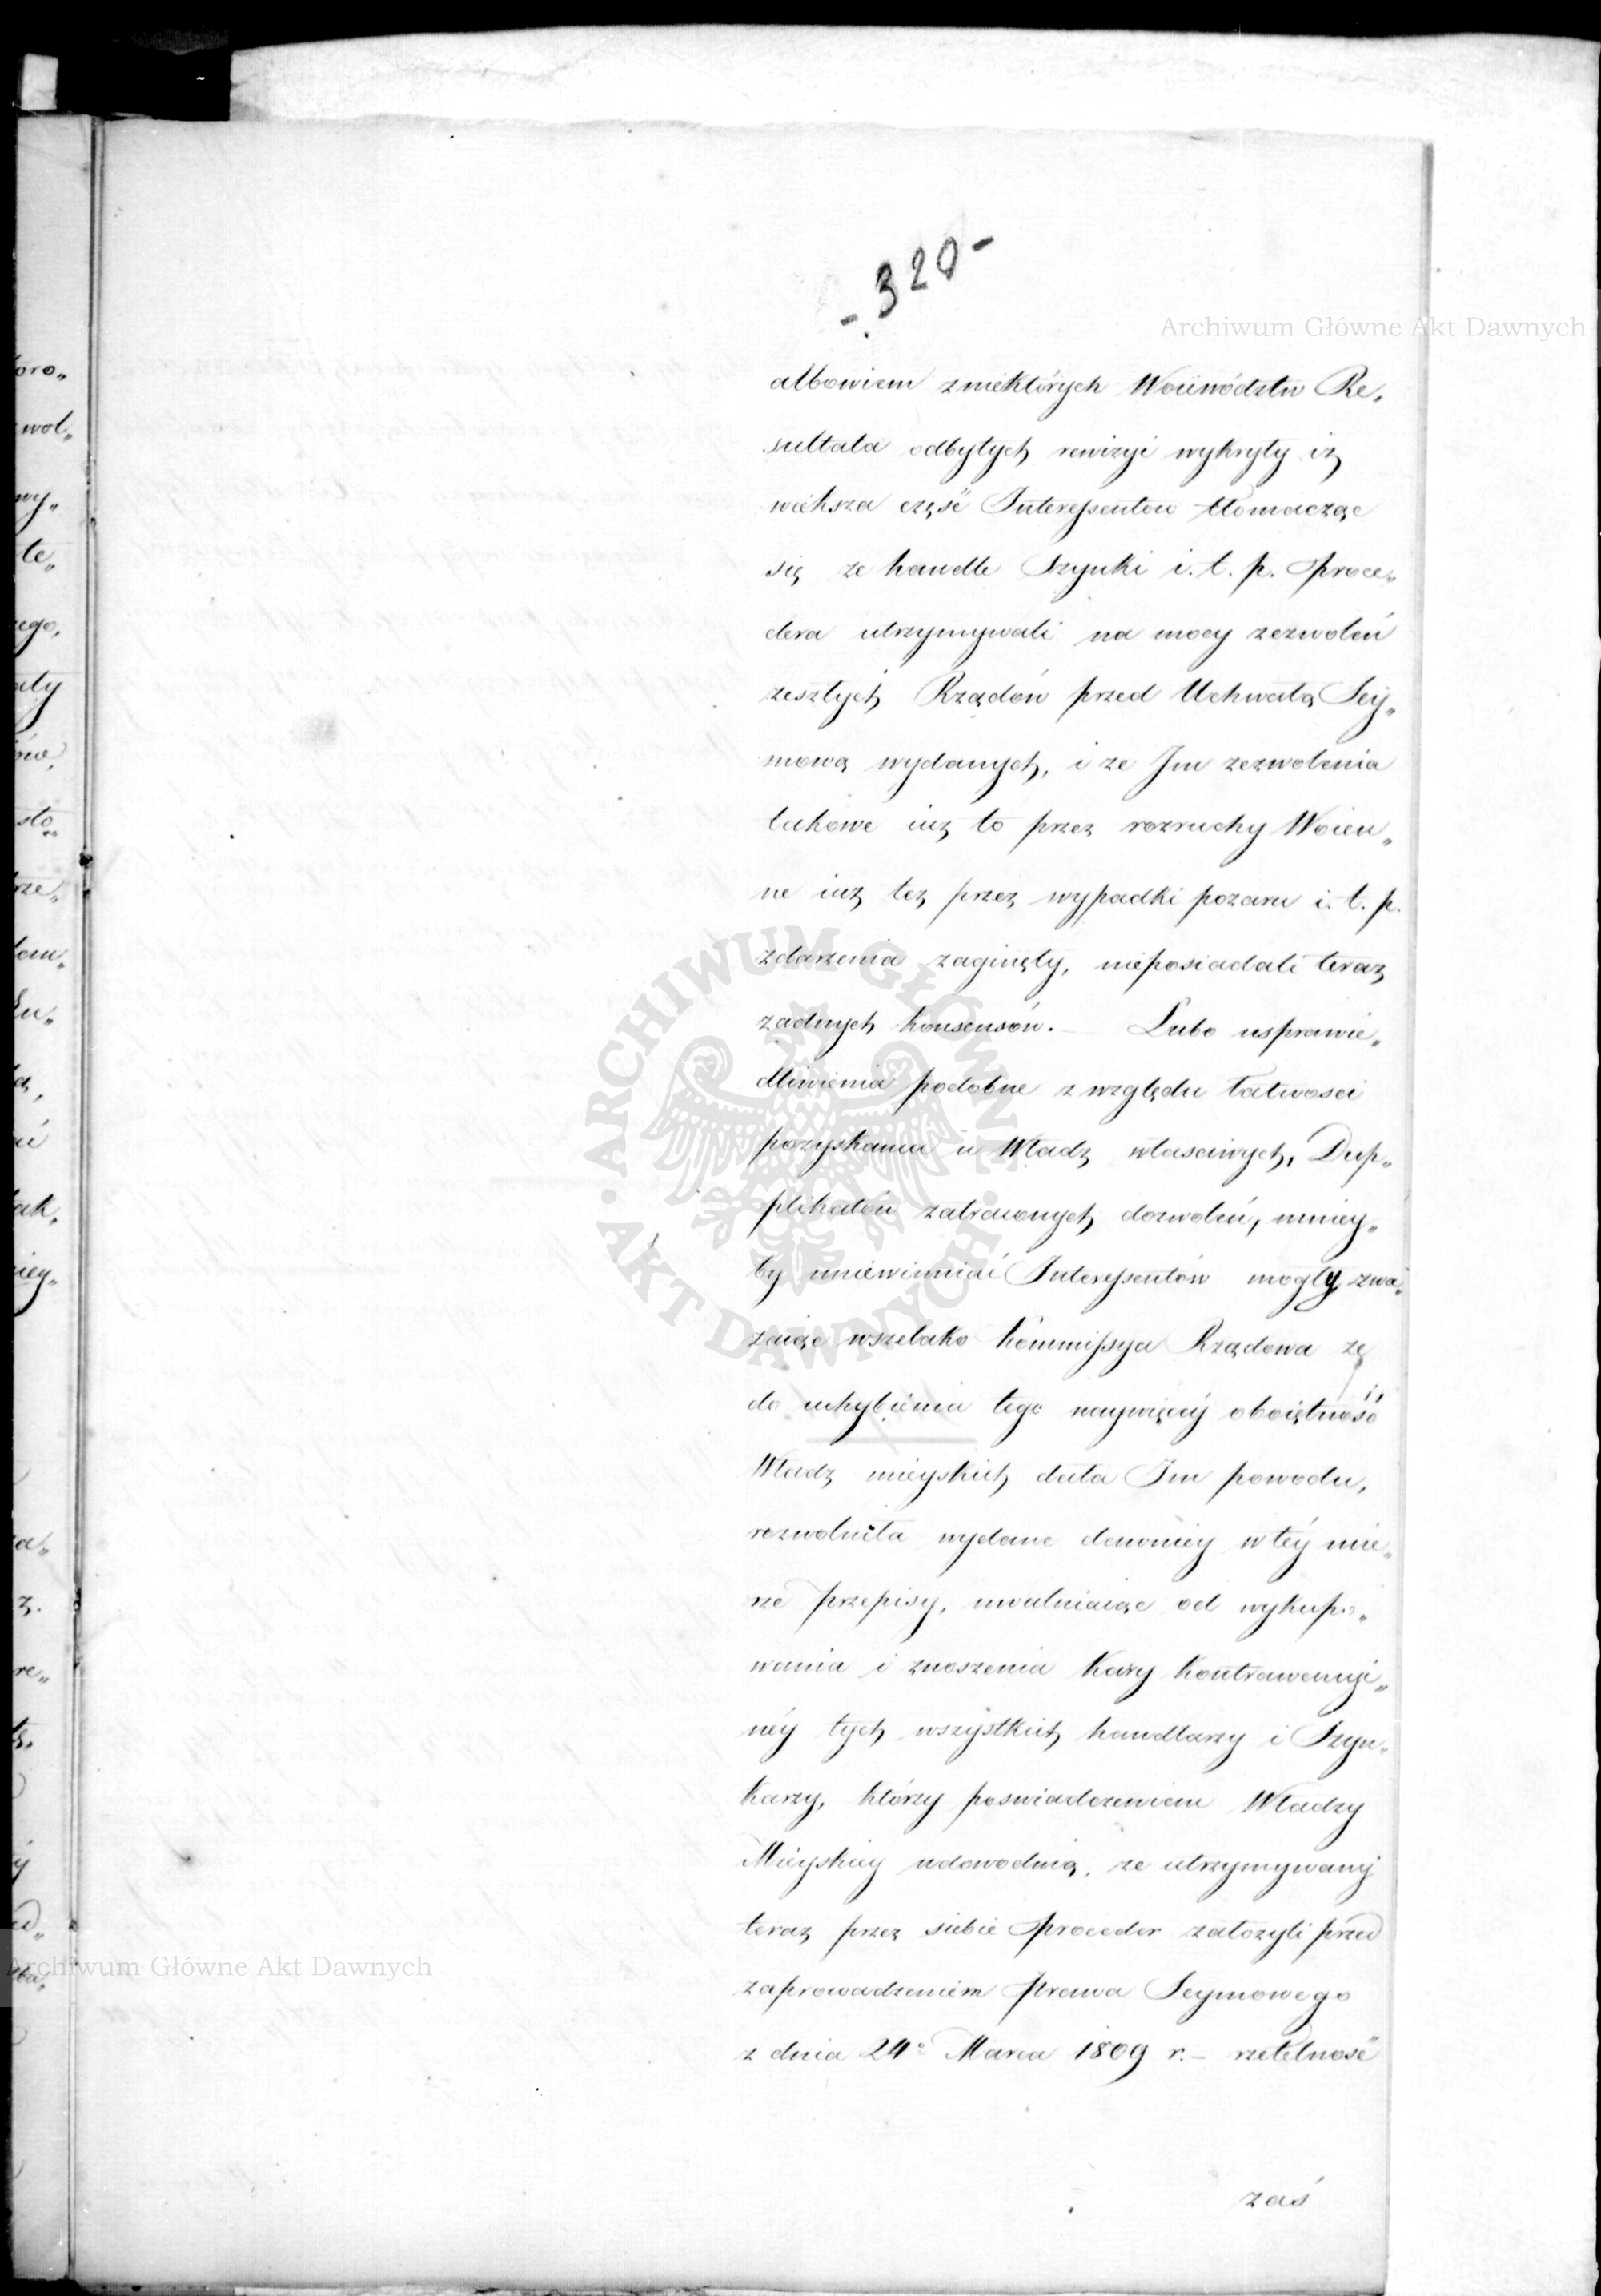 - 320 -
Archiwum Główne Akt Dawnych
albowiem z niektórych Woiewództw Re„
sultata odbytych rewizyi wykryły iż
wieksza część Interessentow tłomacząc
się ze handle Szynki i. t. p. Proce„
dera utrzymywali na mocy zezwoleń
zeszłych Rządów przed Uchwałą Sey„
mową wydanych, i ze Im zezwolenia
takowe iuz to przez rozruchy Woien„
ne iuz tez przez wypadki pozaru i. t. p.
zdarzenia zaginęły, nieposiadali teraz
zadnych konsensów. — Lubo usprawie„
dliwienia podobne z względu łatwosci
pozyskania u Władz własciwych, Dup„
plikatów zatraconych dozwoleń, mniey„
by uniewinniać Interessentów mogły zwa„
zaiąc wszelako Kommissya Rządowa ze
do uchybienia tego naywięcéy oboiętność
Władz mieyskich dała Im powodu,
rozwolniła wydane dawniey w téy mie„
rze przepisy, uwalniaiąc od wykupo„
wania i znoszenia kary kontrawencyi„
néy tych wszystkich handlarzy i Szyn„
karzy, którzy poswiadczeniem Władzy
Mieyskiey udowodnią, ze utrzymywany
teraz przez siebie Proceder założyli przed
zaprowadzeniem Prawa Seymowego
z dnia 24º Marca 1809 r. — rzetelność
zaś
oro„
wol„
wy„
te„
ego,
ały
ów,
sto„
rze„
tom„
ak„
iey„
a„
z.
re„
y
ARCHIWUM GŁÓWNE • AKT DAWNYCH •
Archiwum Główne Akt Dawnych